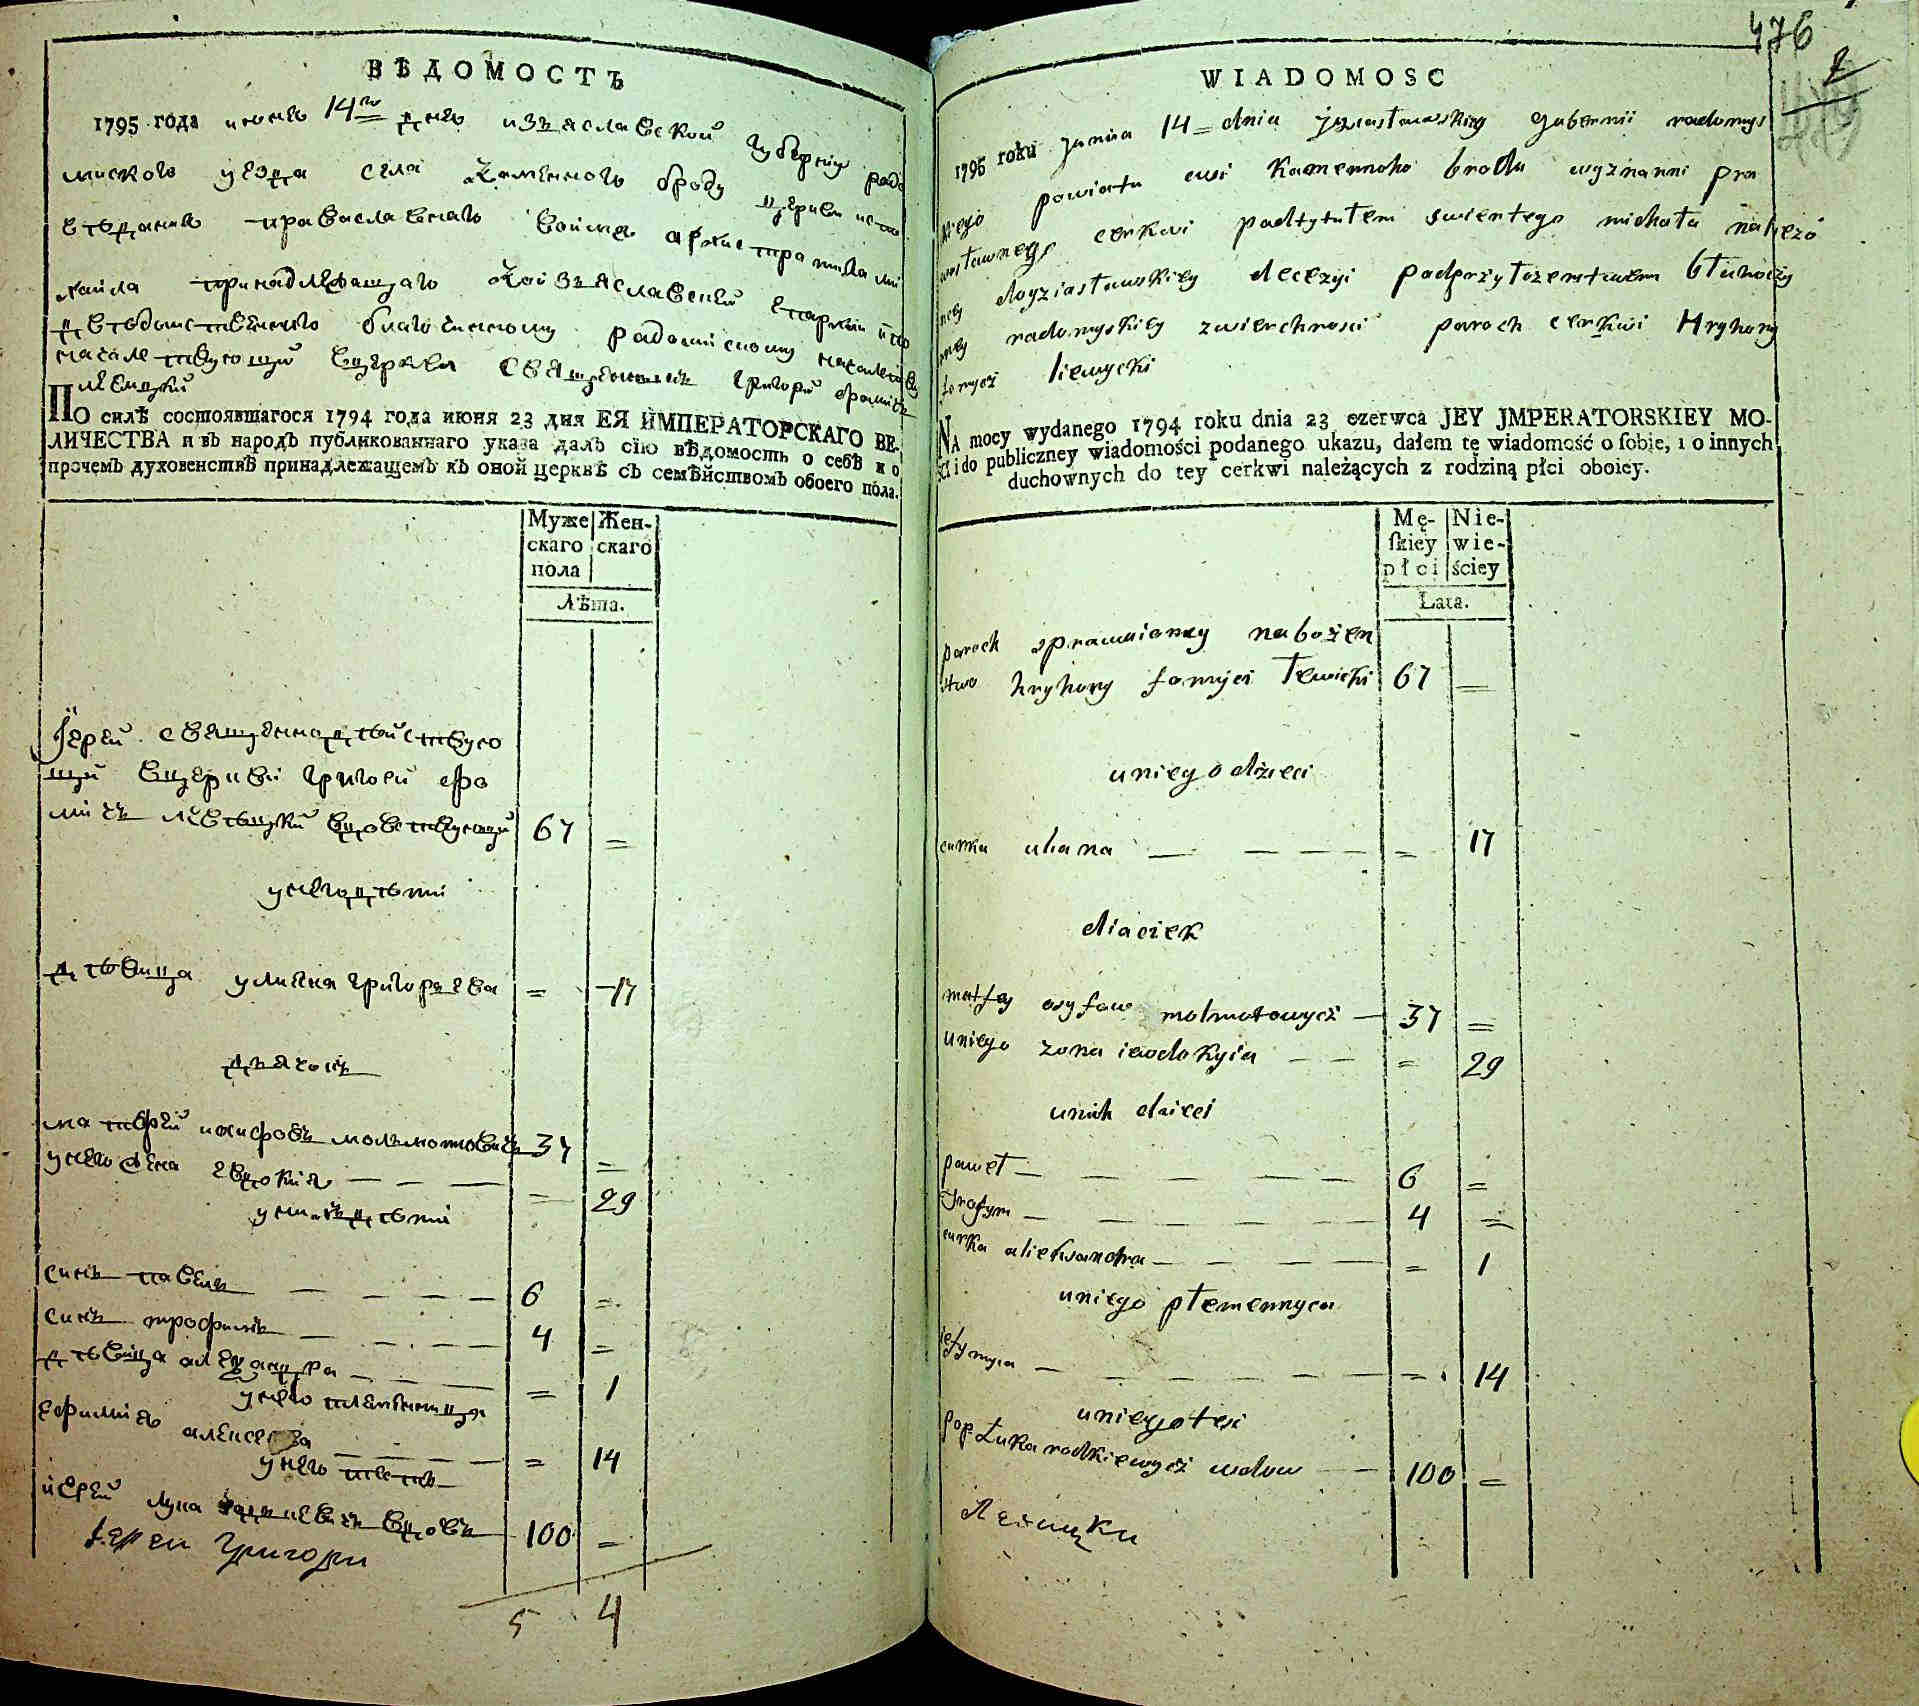 ВѢДОМОСТЬ
1795 года июнь 14го днь изъяславской губернїи радо
миского уезда села Каменного броду церкви исто
архистратига ми
хаила принадлежащаго Коизъяславской епархии
благочинному радомискому
началствующий вцеркви священникъ григорий фомичъ
левицкий
ПО силѣ состоявшагося 1794 года июня 23 дня ЕЯ ИМПЕРАТОРСКАГО ВЕ-
ЛИЧЕСТВА и въ народъ публикованнаго указа далъ сїю вѣдомость о себѣ и о
прочемъ духовенствѣ принадлежащемъ къ оной церквѣ съ семѣйствомъ обоего пола.
Муже Жен-
скаго скаго
пола
Лѣта.
Їерей священнодѣйствую
щий вцеркви григорей фо
мичъ левѣцкий вдовствующий 67 =
унего дѣти
дѣвица улияна григорьева = 17
дьячокъ
матвѣй иосифовъ молмотовичъ 37 =
унего жена евдокия — — — = 29
унихъ дѣти
синъ павелъ — — — — 6 =
синъ трофимъ — — — — 4 =
дѣвица александра — — — = 1
унего племѣнница
ефимия алексеева — — — = 14
унего тесть
иерей лука радкевичъ вдовъ 100 =
Іерей Григори
5 4
476
2
WIADOMOSC
1795 roku junia 14 = dnia Jzyiasławskiey gubernii radomys
kiego powiatu cwi Kamennoho brodu wyznanni pra
wosławnego cerkwi padtytułem swientego michała należo
ney doyziasławskiey decezyi
radomyskiey zwierchnosci paroch cerkwi Hryhory
fomycz liewycki
NA mocy wydanego 1794 roku dnia 23 czerwca JEY JMPERATORSKIEY MO-
ści i do publiczney wiadomości podanego ukazu, dałem tę wiadomość o ſobie, i o innych
duchownych do tey cerkwi należących z rodziną płci oboiey.
Mę- Nie-
ſkiey wie-
płci ściey
Lata.
paroch sprawuiancy nabożen
stwo hryhory fomycz lewicki 67 =
uniego dzieci
curka uliana — — — — = 17
diaciek
matfey osyfow molmotowycz — 37 =
uniego zona iewdokyia — — = 29
unich dzieci
paweł — — — — — 6 =
trofym — — — — — 4 =
curka aliexandra — — — — = 1
uniego płemennyca
iefymyia — — — — — = 14
uniego tesc
pop Łuka radkiewycz wdow — 100 =
Левицки